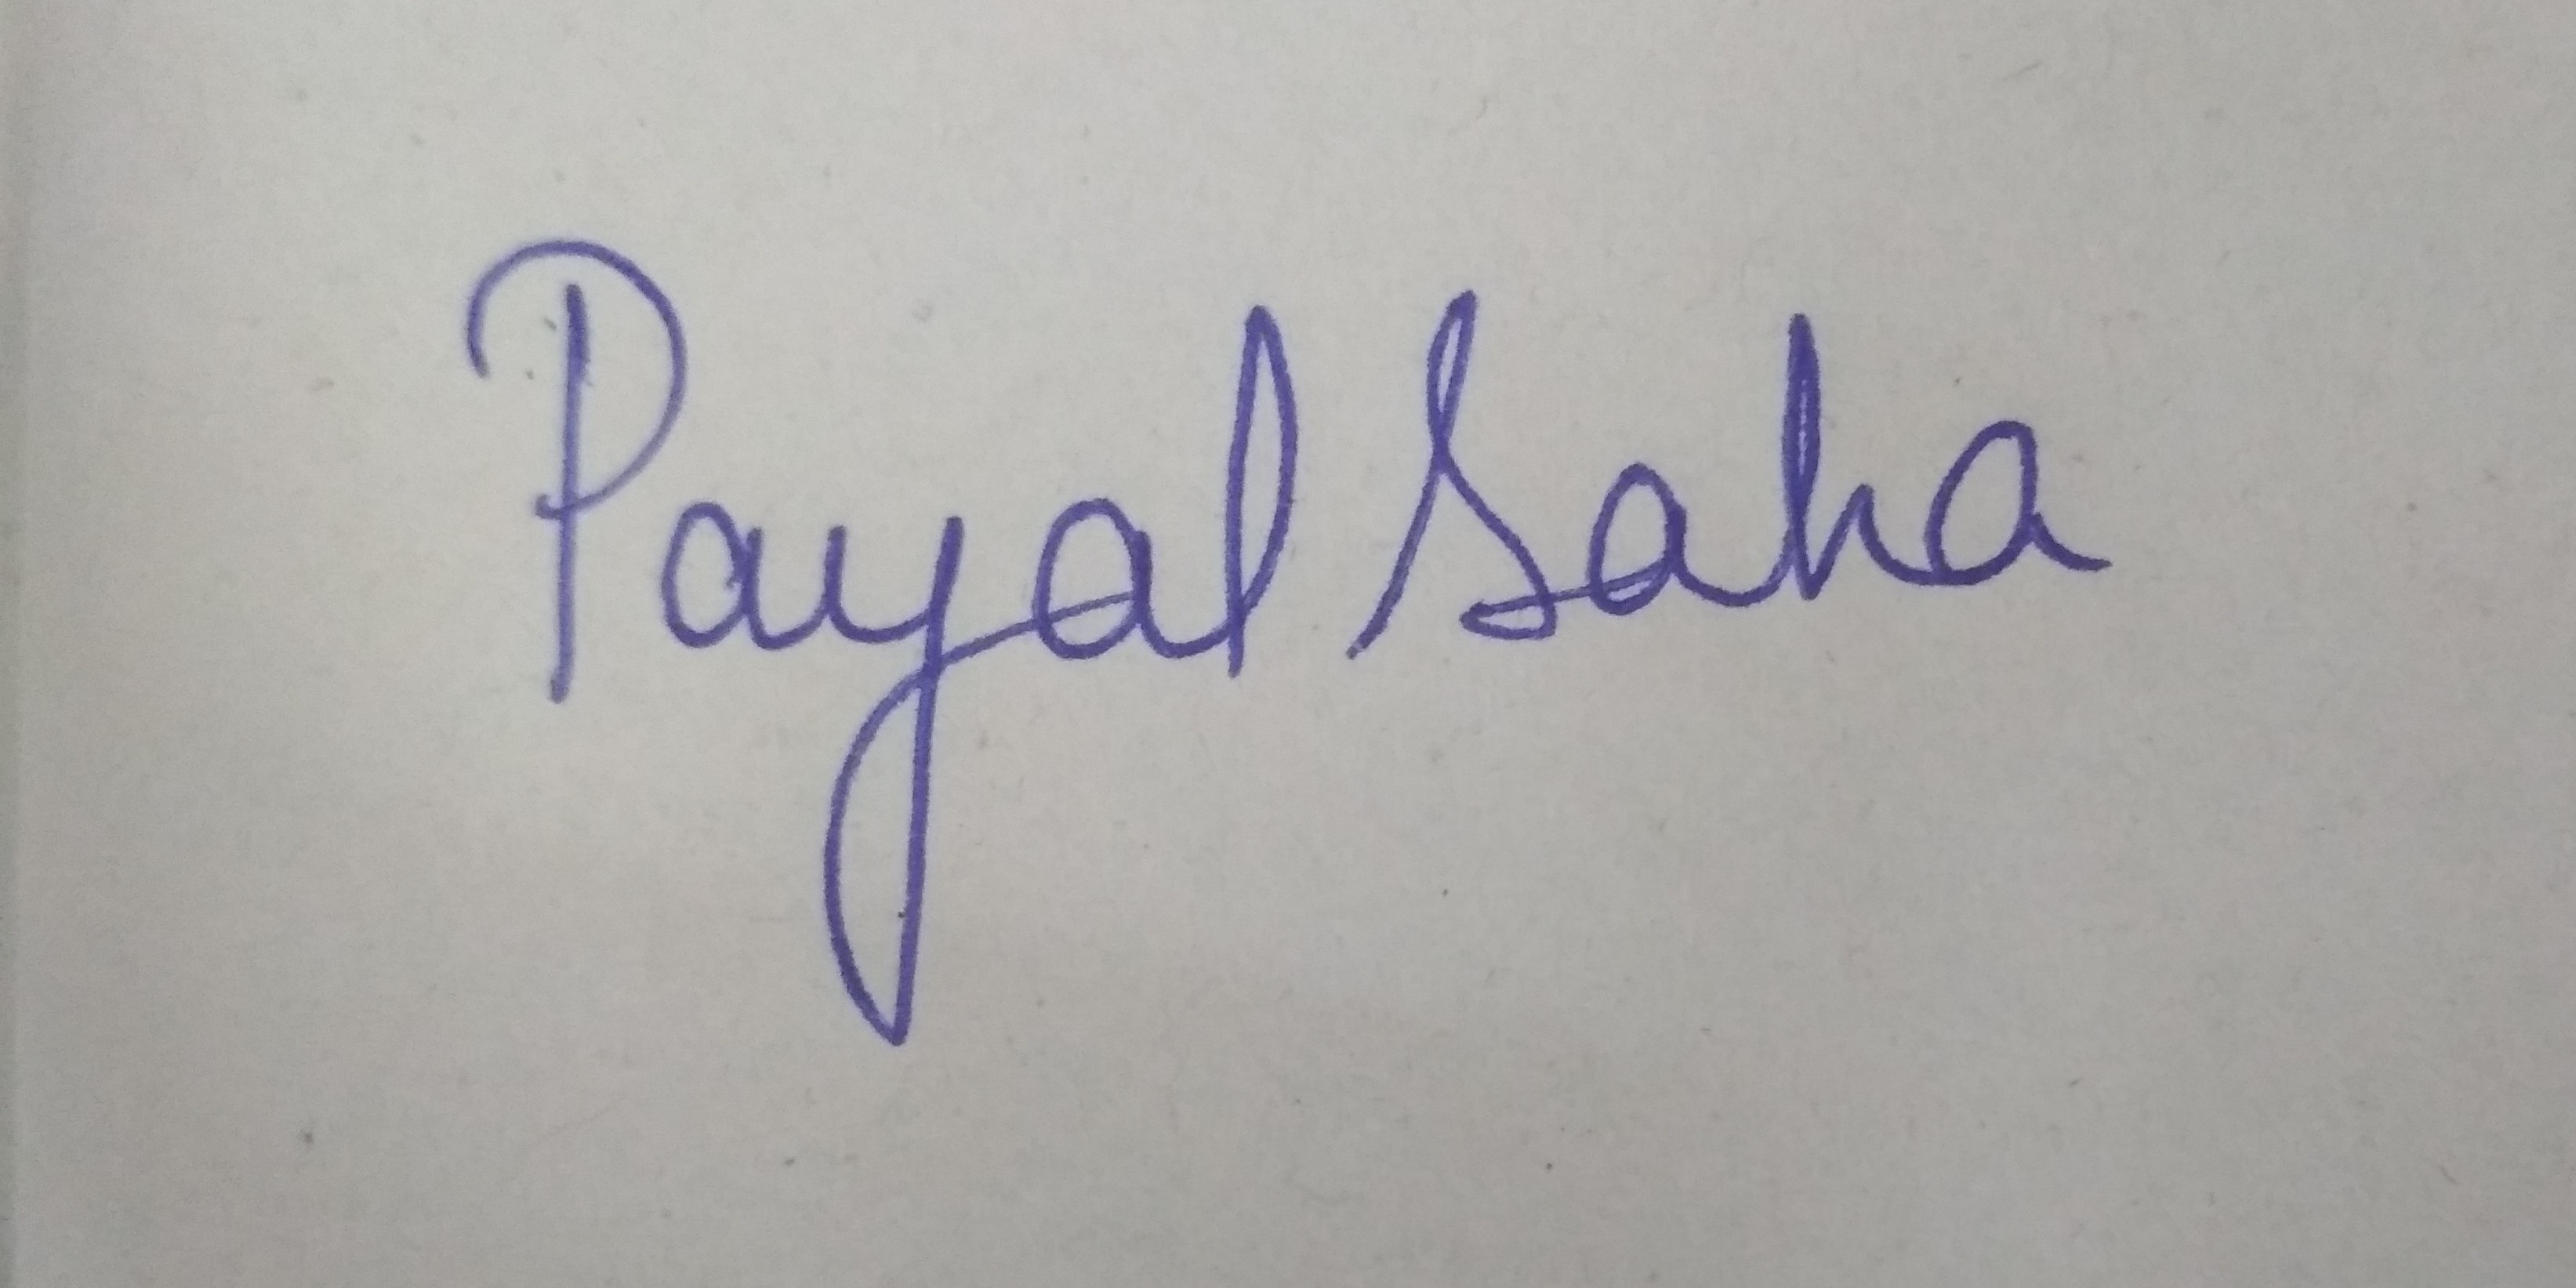 Payal Saha